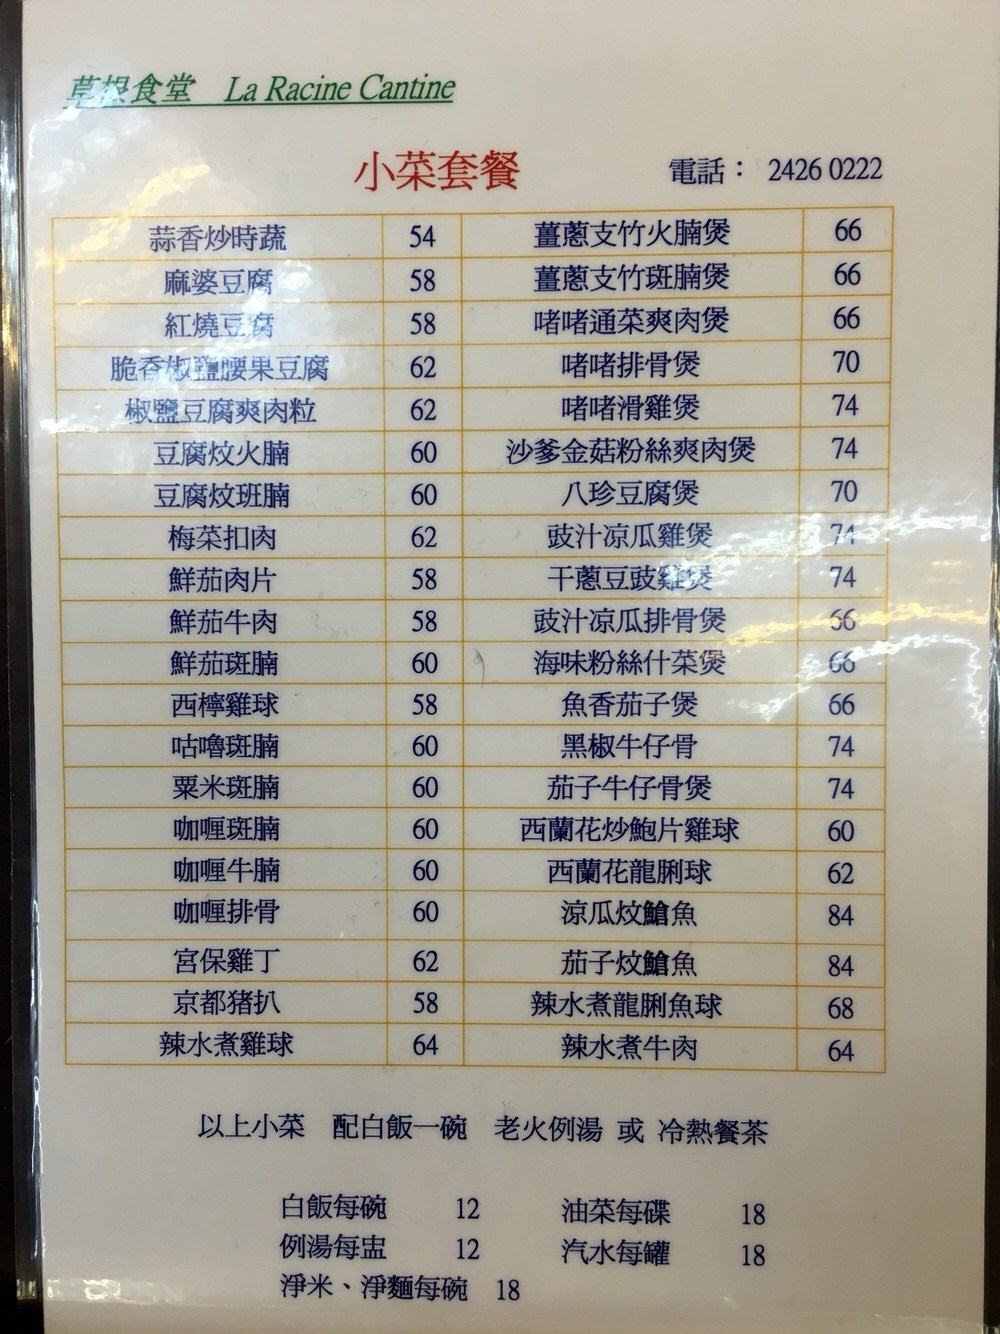 草根食堂 La Racine Cantine
小菜套餐 電話： 2426 0222
蒜香炒時蔬 54 薑蔥支竹火腩煲 66
麻婆豆腐 58 薑蔥支竹斑腩煲 66
紅燒豆腐 58 啫啫通菜爽肉煲 66
脆香椒鹽腰果豆腐 62 啫啫排骨煲 70
椒鹽豆腐爽肉粒 62 啫啫滑雞煲 74
豆腐炆火腩 60 沙爹金菇粉絲爽肉煲 74
豆腐炆班腩 60 八珍豆腐煲 70
梅菜扣肉 62 豉汁凉瓜雞煲 74
鮮茄肉片 58 干蔥豆豉雞煲 74
鮮茄牛肉 58 豉汁凉瓜排骨煲 66
鮮茄斑腩 60 海味粉絲什菜煲 66
西檸雞球 58 魚香茄子煲 66
咕嚕斑腩 60 黑椒牛仔骨 74
粟米斑腩 60 茄子牛仔骨煲 74
咖喱斑腩 60 西蘭花炒鮑片雞球 60
咖喱牛腩 60 西蘭花龍脷球 62
咖喱排骨 60 涼瓜炆鰽魚 84
宮保雞丁 62 茄子炆鰽魚 84
京都猪扒 58 辣水煮龍脷魚球 68
辣水煮雞球 64 辣水煮牛肉 64
以上小菜 配白飯一碗 老火例湯 或 冷熱餐茶
白飯每碗 12 油菜每碟 18
例湯每盅 12 汽水每罐 18
淨米、淨麵每碗 18